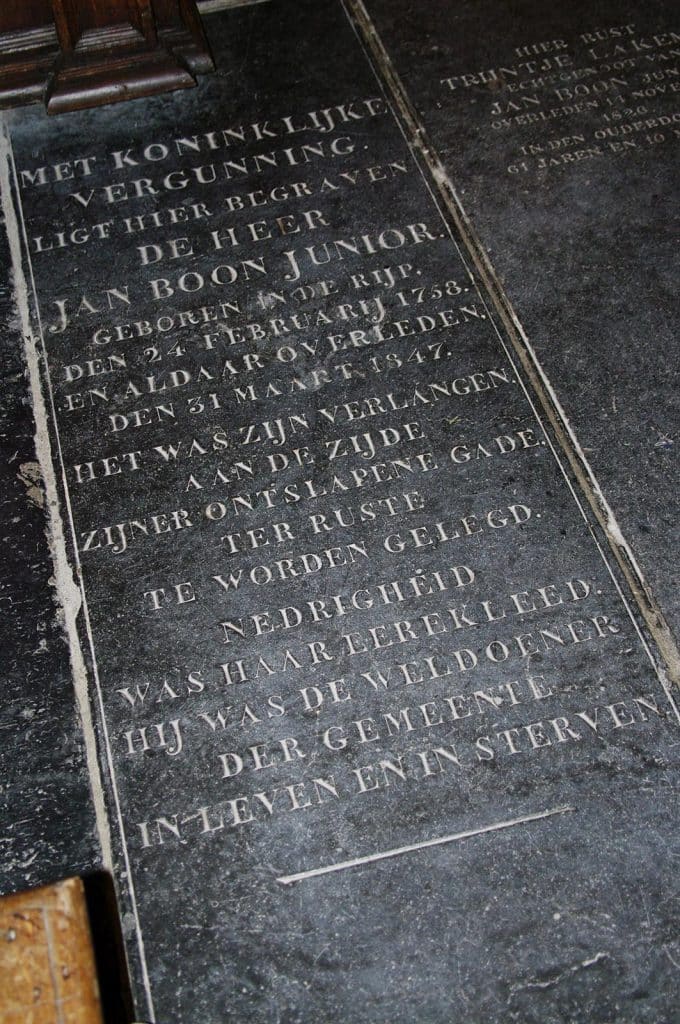 MET KONINKLIJKE
VERGUNNING.
LIGT HIER BEGRAVEN
DE HEER
JAN BOON JUNIOR.
GEBOREN IN DE RIJP.
DEN 24 FEBRUARIJ 1758.
EN ALDAAR OVERLEDEN.
DEN 31 MAART 1847.
HET WAS ZIJN VERLANGEN.
AAN DE ZIJDE
ZIJNER ONTSLAPENE GADE.
TER RUSTE
TE WORDEN GELEGD.
NEDRIGHEID
WAS HAAR EEREKLEED.
HIJ WAS DE WELDOENER
DER GEMEENTE
IN LEVEN EN IN STERVEN
HIER RUST
TRIJNTJE LAKEM
ECHTGENOOT VAN
JAN BOON JUN
OVERLEDEN 17 NOVE
1820.
IN DEN OUDERDO
61 JAREN EN 10